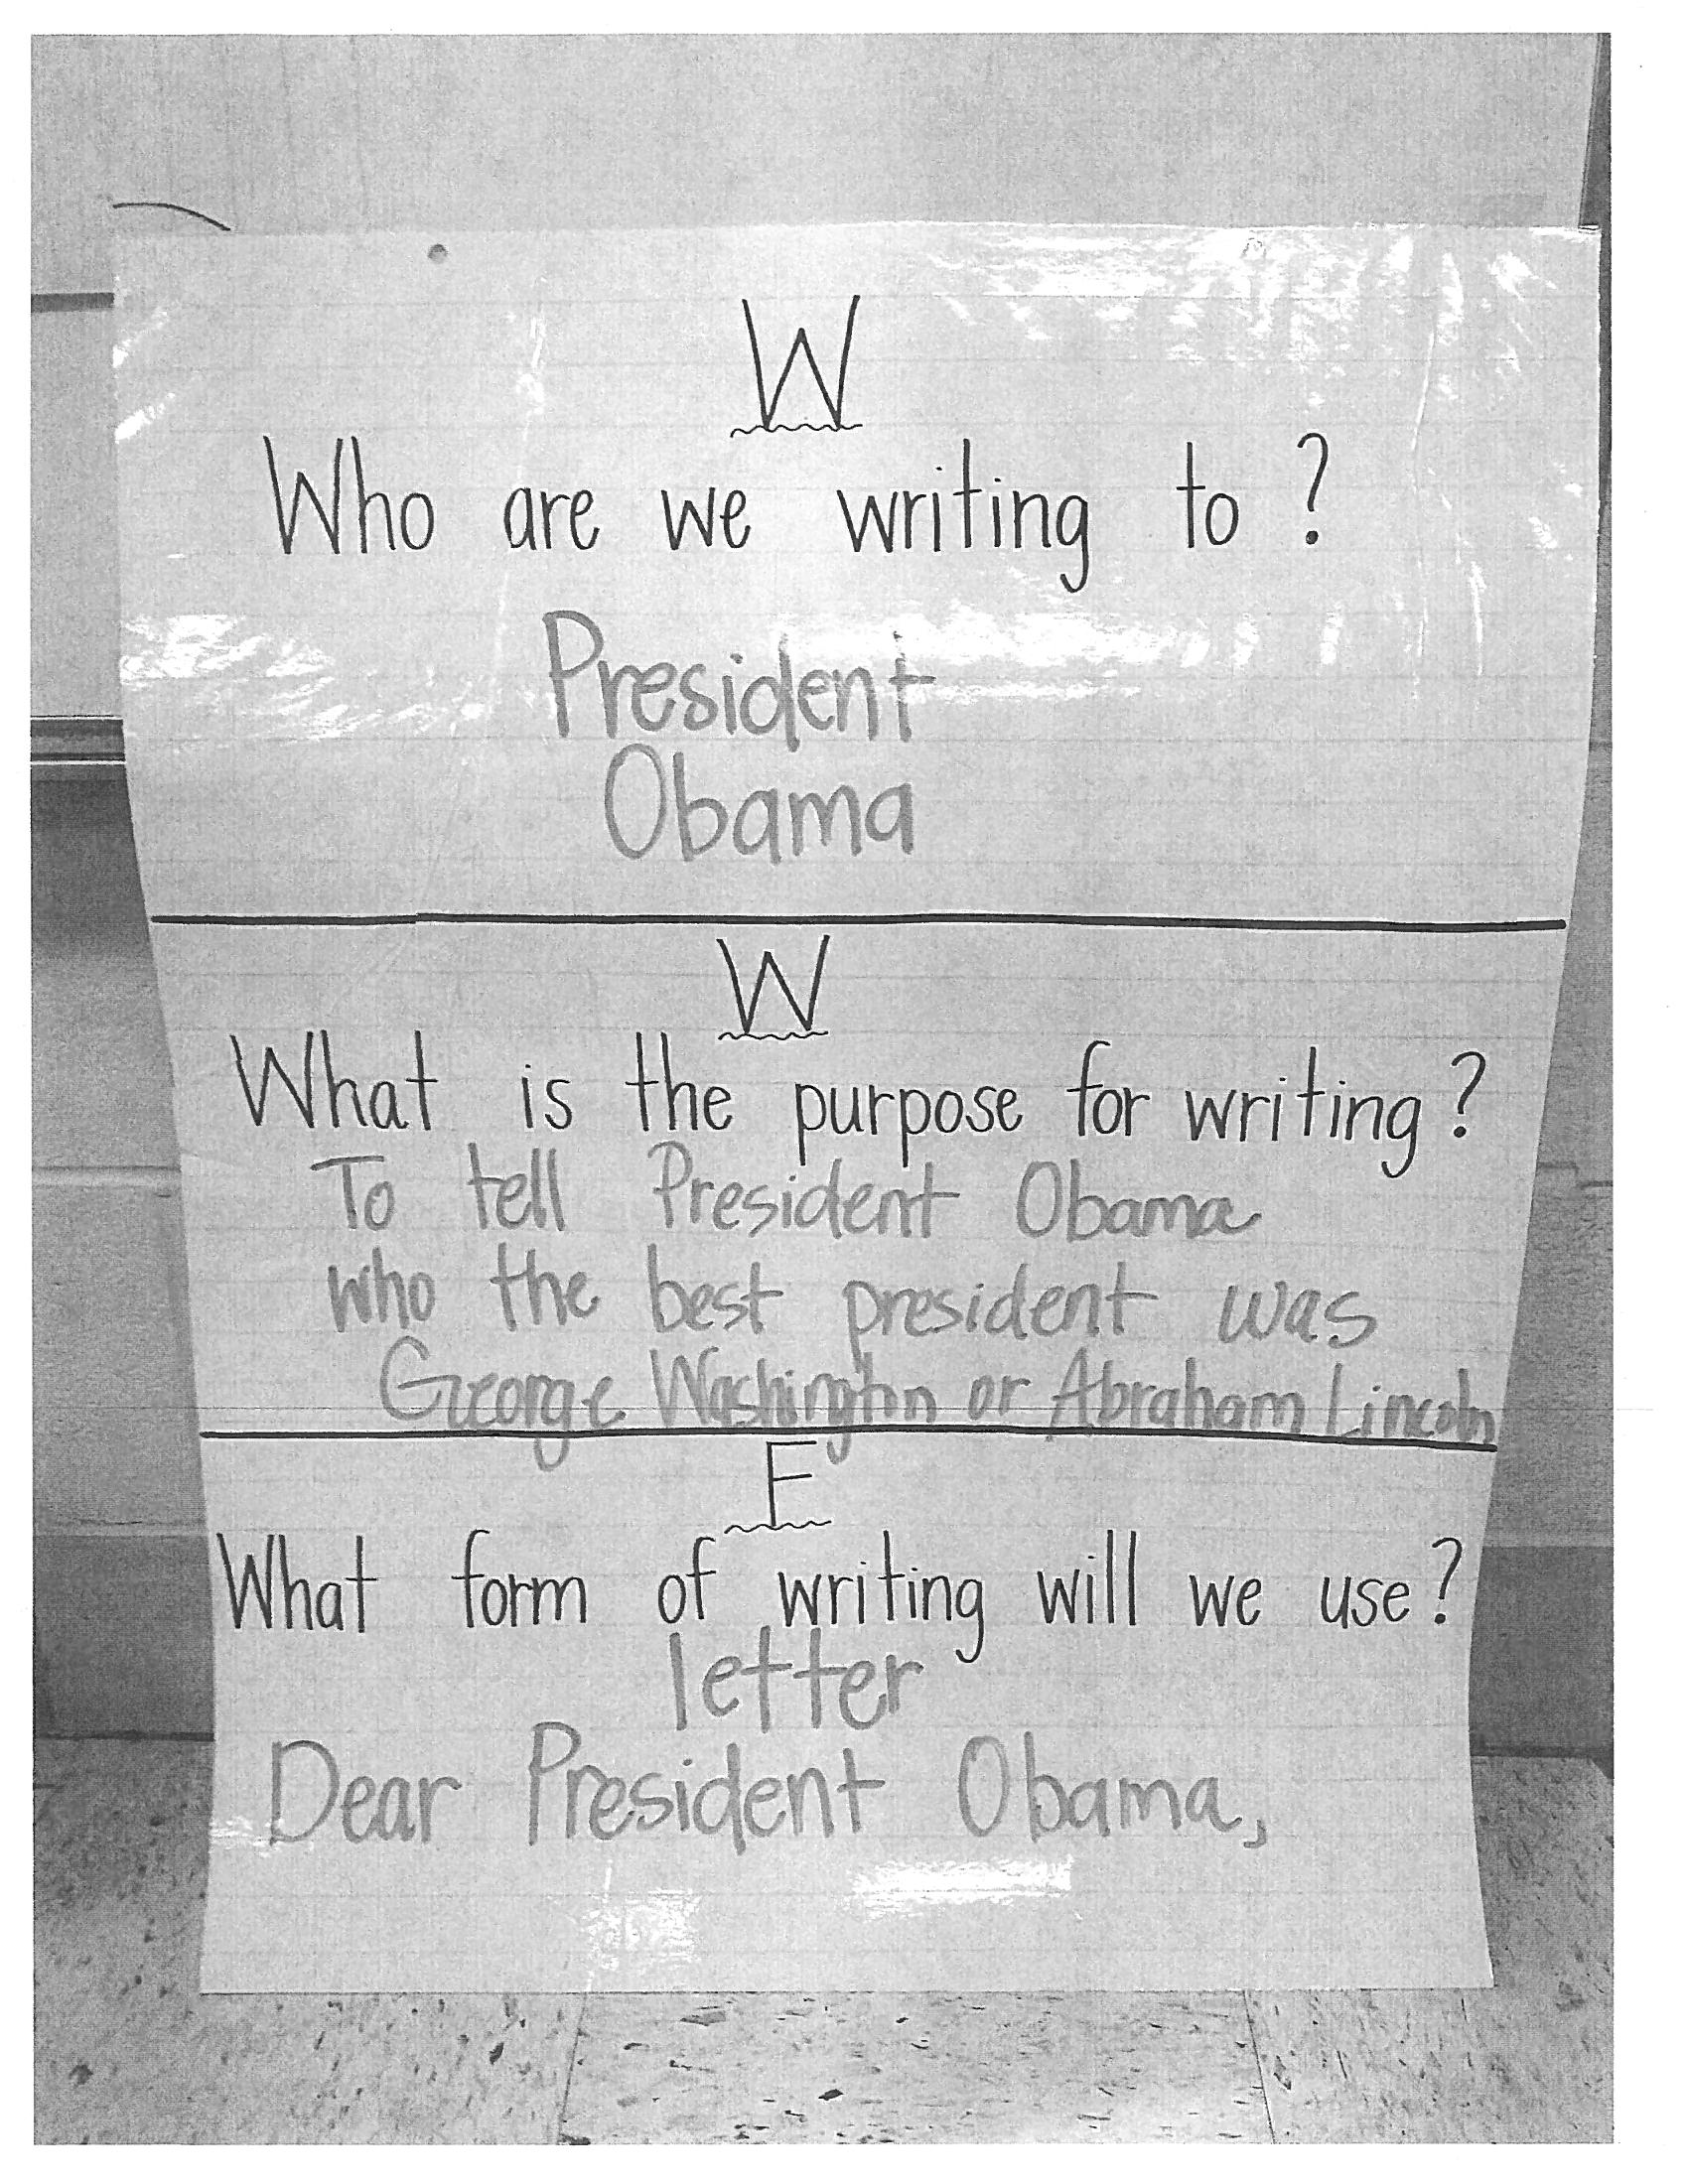 W
Who are we writing to?
President
Obama
W
What is the purpose for writing?
To tell President Obama
who the best president was
George Washington or Abraham Lincoln
F
What form of writing will we use?
letter
Dear President Obama,